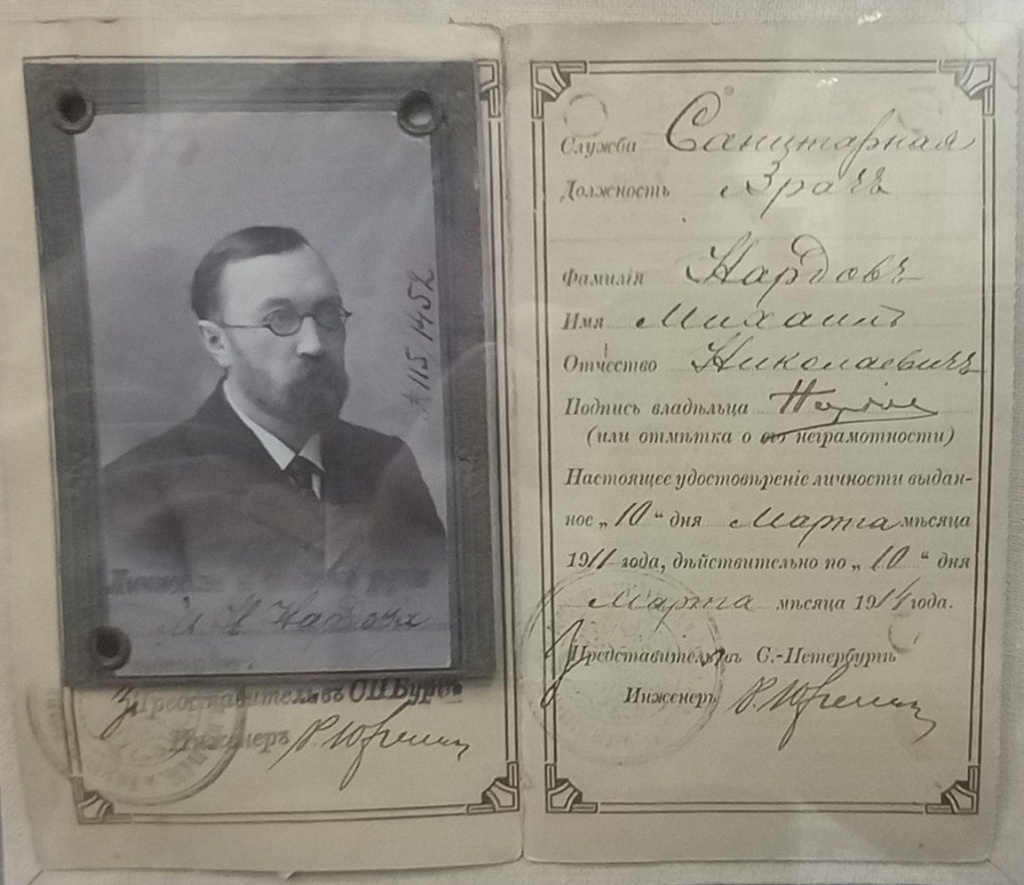 А 115 1452
М Н Нардова
Представитель въ СПБургѣ
Инженеръ Р. Юргенсъ
Служба Санитарная
Должность Врачъ
Фамилія Нардовъ
Имя Михаилъ
Отчество Николаевичъ
Подпись владѣльца
(или отмѣтка о его неграмотности)
Настоящее удостовѣреніе личности выдан-
ное „10“ дня Марта мѣсяца
1911 года, дѣйствительно по „10“ дня
Марта мѣсяца 1914 года.
Представитель въ С.-Петербургѣ
Инженеръ